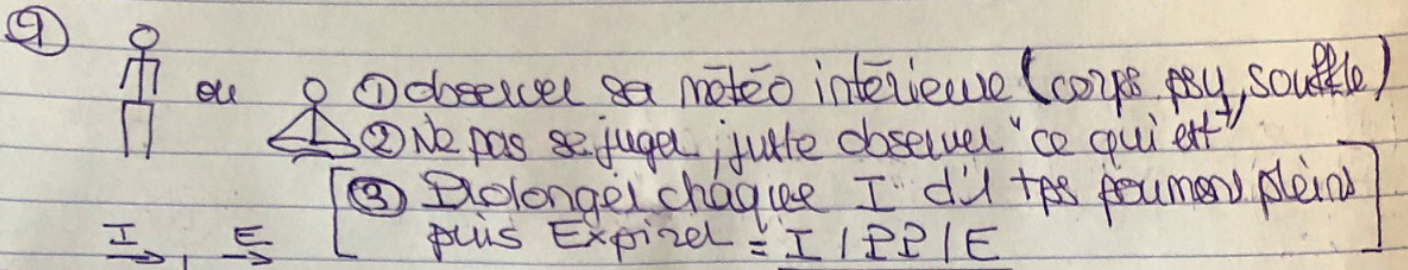 9
ou ① observer sa météo intérieure (corps, psy, souffle)
② Ne pas se juger, juste observer "ce qui est"
[③ Prolonger chaque I d'1 tps poumons pleins
I, E puis Expirer = I / PP / E]